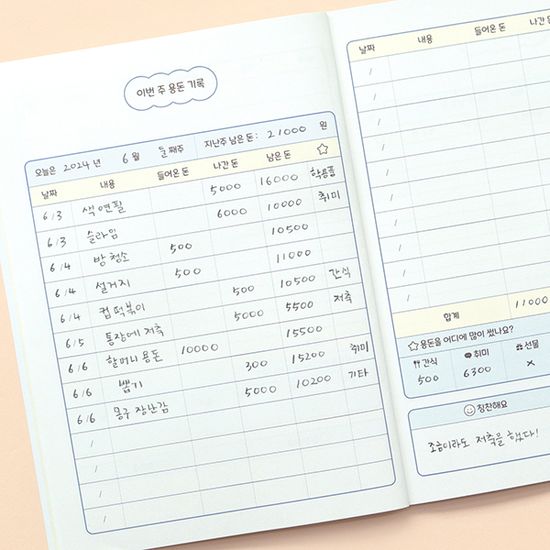 이번 주 용돈 기록
오늘은 2024 년 6 월 둘 째주 지난주 남은 돈 : 21000 원
날짜 내용 들어온 돈 나간 돈 남은 돈 ☆
6/3 색연필 5000 16000 학용품
6/3 슬라임 6000 10000 취미
6/4 방 청소 500 10500
6/4 설거지 500 11000
6/4 컵떡볶이 500 10500 간식
6/5 통장에 저축 5000 5500 저축
6/6 할머니 용돈 10000 15500
6/6 뽑기 300 15200 취미
6/6 몽구 장난감 5000 10200 기타
/
/
/
/
날짜 내용 들어온 돈 나간 돈
/
/
/
/
/
/
/
/
/
/
합계 11000
☆ 용돈을 어디에 많이 썼나요?
간식 취미 선물
500 6300 x
칭찬해요
조금이라도 저축을 했다!